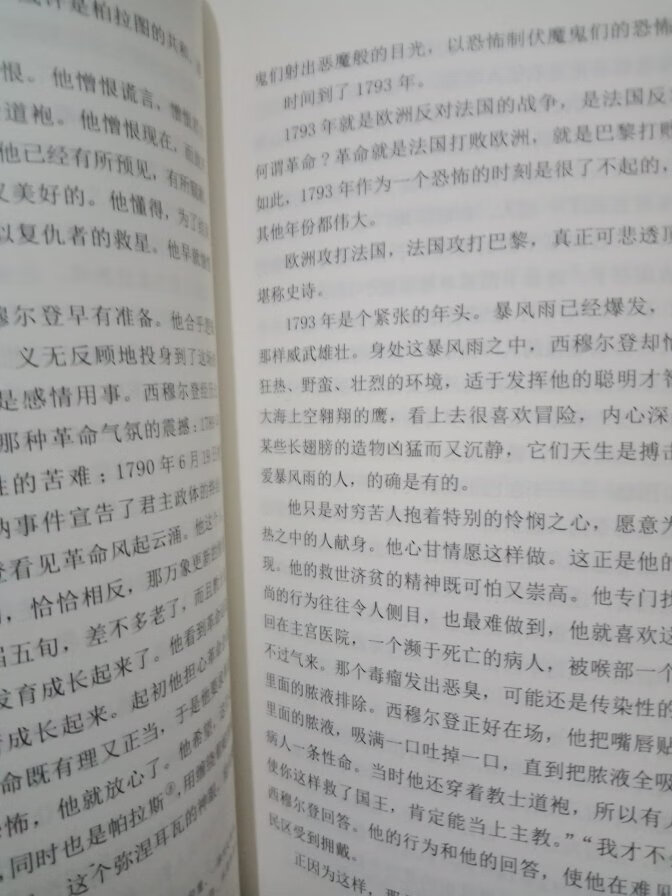 是柏拉图的共和
恨。他憎恨谎言，憎恨
道袍。他憎恨现在，
他已经有所预见，有所
又美好的。他懂得，为了
以复仇者的救星。他早就
穆尔登早有准备。他合乎
义无反顾地投身到了这场
是感情用事。西穆尔登经历
那种革命气氛的震撼：1789
性的苦难；1790年6月19日
纳事件宣告了君主政体的
登看见革命风起云涌。他这个
，恰恰相反，那万象更新
届五旬，差不多老了，而且
发育成长起来了。他看到革命
育成长起来。起初他担心革命
命既有理又正当，于是他要求
恐怖，他就放心了。他希望，
，同时也是帕拉斯，用
这个弥涅耳瓦的神眼，
鬼们射出恶魔般的目光，以恐怖制伏魔鬼们的恐怖
时间到了1793年。
1793年就是欧洲反对法国的战争，是法国反
何谓革命？革命就是法国打败欧洲，就是巴黎打
如此，1793年作为一个恐怖的时刻是很了不起的，
其他年份都伟大。
欧洲攻打法国，法国攻打巴黎，真正可悲透顶
堪称史诗。
1793年是个紧张的年头。暴风雨已经爆发，
那样威武雄壮。身处这暴风雨之中，西穆尔登却
狂热、野蛮、壮烈的环境，适于发挥他的聪明才
大海上空翱翔的鹰，看上去很喜欢冒险，内心深
某些长翅膀的造物凶猛而又沉静，它们天生是搏击
爱暴风雨的人，的确是有的。
他只是对穷苦人抱着特别的怜悯之心，愿意为
热之中的人献身。他心甘情愿这样做。这正是他的
现。他的救世济贫的精神既可怕又崇高。他专门
尚的行为往往令人侧目，也最难做到，他就喜欢这
回在主宫医院，一个濒于死亡的病人，被喉部一个
不过气来。那个毒瘤发出恶臭，可能还是传染性的
里面的脓液排除。西穆尔登正好在场，他把嘴唇贴
里面的脓液，吸满一口吐掉一口，直到把脓液全吸
病人一条性命。当时他还穿着教士道袍，所以有人
使你这样救了国王，肯定能当上主教。”“我才不
西穆尔登回答。他的行为和他的回答，使他在难
民区受到拥戴。
正因为这样，那